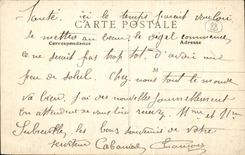 Santé, ici le temps parait vouloir
CARTE POSTALE
se mettre au beau, le dégel commence
Correspondance
Adresse
ce ne serait pas trop tôt d'avoir un
peu de soleil. Chez nous tout le monde
va bien, j'ai des nouvelles journellement
En attendant de vous lire recevez Mme et Mr
les bons souvenirs de votre
serviteur Cabanial